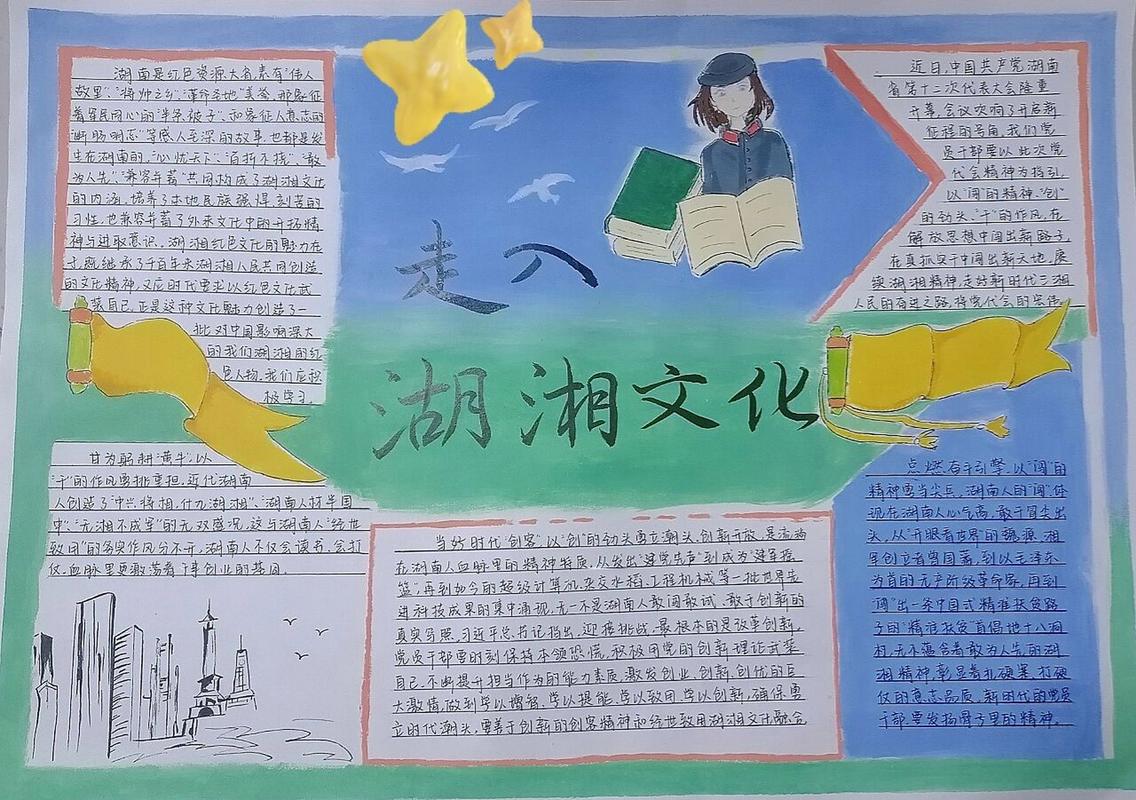 走入
湖湘文化
湖南是红色资源大省,素有"伟人
故里"、"将帅之乡"、"革命圣地"美誉,那象征
着军民同心的"半条被子"、和象征人意志的
"断肠明志"等感人至深的故事,也都是发
生在湖南的,"心忧天下"、"百折不挠"、"敢
为人先"、"兼容并蓄"共同构成了湖湘文化
的内涵,培养了本地民族强悍刻苦的
习性,也兼容并蓄了外来文化中的开拓精
神与进取意识。湖湘红色文化的魅力在
于,既继承了千百年来湖湘人民共同创造
的文化精神,又应时代要求以红色文化武
装自己,正是这种文化魅力创造了一
批对中国影响深大
的我们湖湘的红
色人物,我们应积
极学习。
近日,中国共产党湖南
省第十二次代表大会隆重
开幕,会议吹响了开启新
征程的号角,我们党
员干部要以此次党
代会精神为指引,
以"闯"的精神、"创"
的劲头、"干"的作风,在
解放思想中闯出新路子,
在真抓实干中闯出新天地,赓
续湖湘精神,走好新时代三湘
人民的奋进之路,将党代会的宏伟
甘为躬耕"黄牛",以
"干"的作风勇挑重担,近代湖南
人创造了"中兴将相,什九湖湘"、"湖南人材半国
中"、"无湘不成军"的无双盛况,这与湖南人"经世
致用"的务实作风分不开,湖南人不仅会读书,会打
仗,血脉里更激荡着干事创业的基因。
当好时代"创客",以"创"的劲头勇立潮头,创新开放,是流淌
在湖南人血脉里的精神特质,从发出"避党先声"到成为"建军摇
篮",再到如今的超级计算机、杂交水稻、工程机械等一批世界先
进科技成果的集中涌现,无一不是湖南人敢闯敢试、敢于创新的
真实写照,习近平总书记指出,迎接挑战,最根本的是改革创新,
党员干部要时刻保持本领恐慌,积极用党的创新理论武装
自己,不断提升担当作为的能力素质,激发创业、创新、创优的巨
大激情,做到学以增智、学以提能、学以致用、学以创新,确保勇
立时代潮头,要善于创新的创客精神和经世致用湖湘文化融合
点燃奋斗引擎,以"闯"的
精神勇当尖兵,湖南人的"闯"体
现在湖南人心气高,敢于冒尖出
头,从"开眼看世界"的魏源、湘
军创立者曾国藩,到以毛泽东
为首的无产阶级革命家,再到
"闯"出一条中国式精准扶贫路
子的"精准扶贫"首倡地十八洞
村,无不蕴含着敢为人先的湖
湘精神,彰显着扎硬寨、打硬
仗的意志品质,新时代的党员
干部,要发扬骨子里的精神。